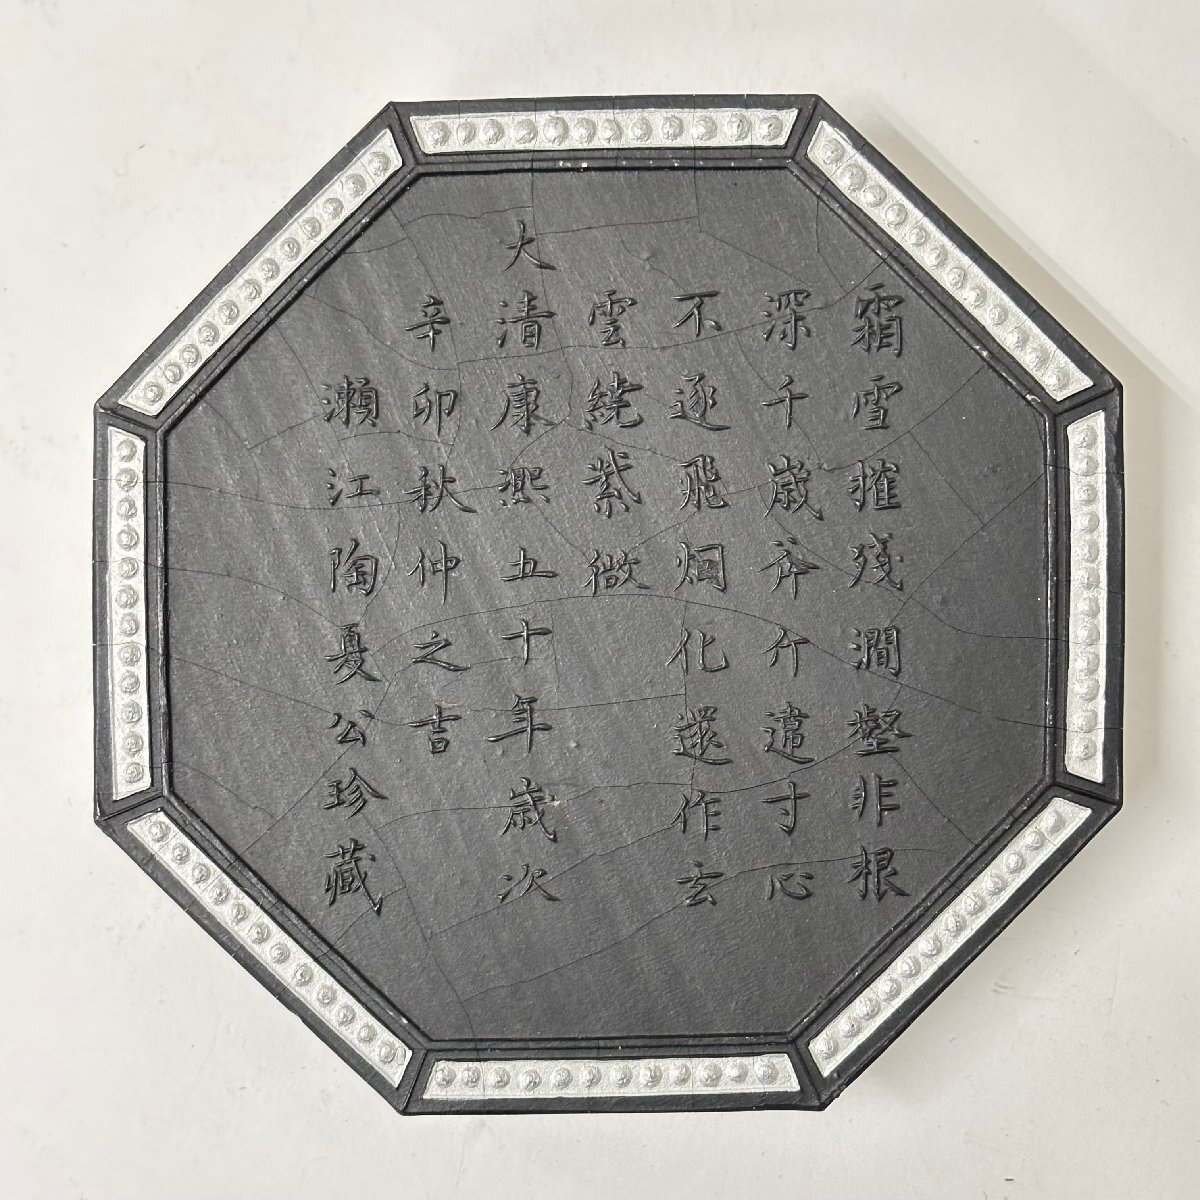 霜雪摧殘澗壑非根
深千歲斧斤遺寸心
不逐飛烟化還作玄
雲繞紫微
大清康熙五十年歲次
辛卯秋仲之吉
瀨江陶夏公珍藏